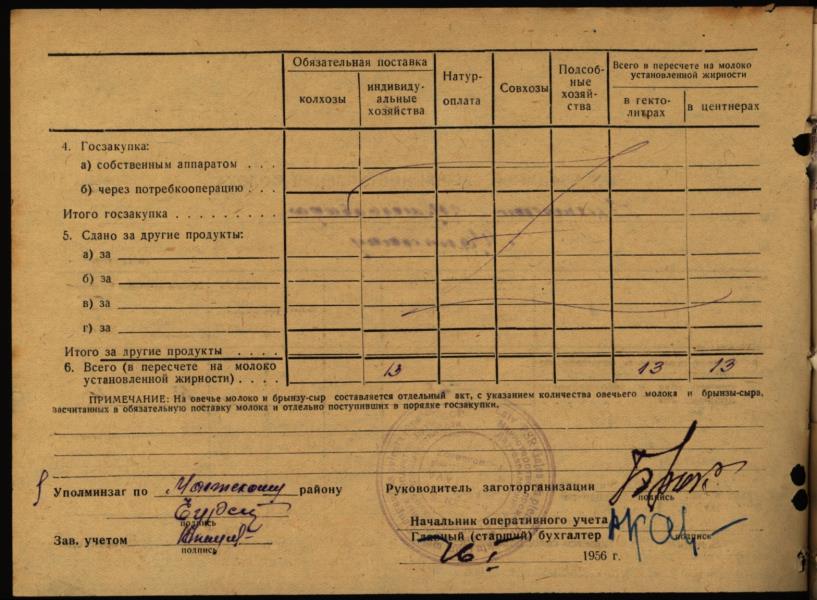 Обязательная поставка
колхозы
индивиду-
альные
хозяйства
Натур-
оплата
Совхозы
Подсоб-
ные
хозяй-
ства
Всего в пересчете на молоко
установленной жирности
в гекто-
литрах
в центнерах
4. Госзакупка:
а) собственным аппаратом . . .
б) через потребкооперацию . . .
Итого госзакупка . . . . . . . . .
5. Сдано за другие продукты:
а) за
б) за
в) за
г) за
Итого за другие продукты . . . .
6. Всего (в пересчете на молоко
установленной жирности) . . . .
13 13 13
ПРИМЕЧАНИЕ: На овечье молоко и брынзу-сыр составляется отдельный акт, с указанием количества овечьего молока и брынзы-сыра,
засчитанных в обязательную поставку молока и отдельно поступивших в порядке госзакупки.
Уполминзаг по району
подпись
Зав. учетом
подпись
Руководитель заготорганизации
подпись
Начальник оперативного учета
Главный (старший) бухгалтер
подпись
26 I 1956 г.